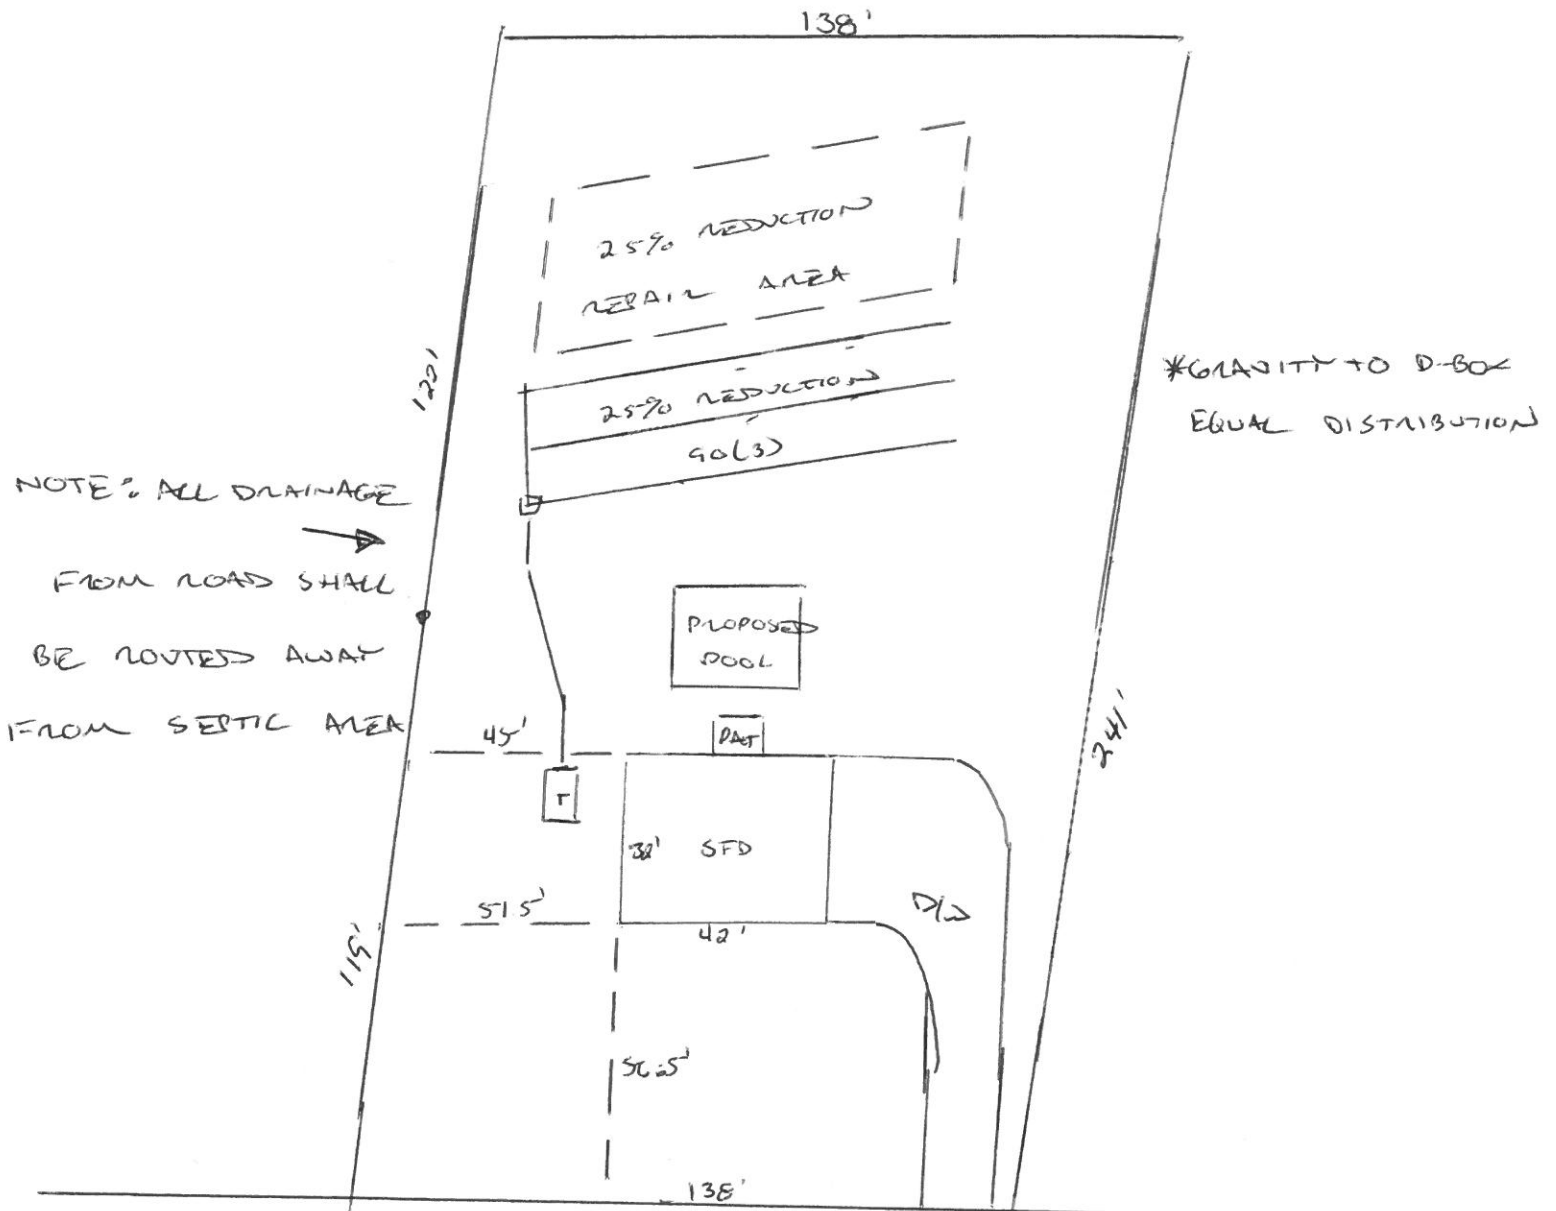 138'
25% REDUCTION
REPAIR AREA
122'
25% REDUCTION
90(3)
*GRAVITY TO D-BOX
EQUAL DISTRIBUTION
NOTE: ALL DRAINAGE
FROM ROAD SHALL
BE ROUTED AWAY
FROM SEPTIC AREA
PROPOSED
POOL
45'
PAT
T
241'
SFD
51.5'
42'
D/W
119'
56.5'
138'